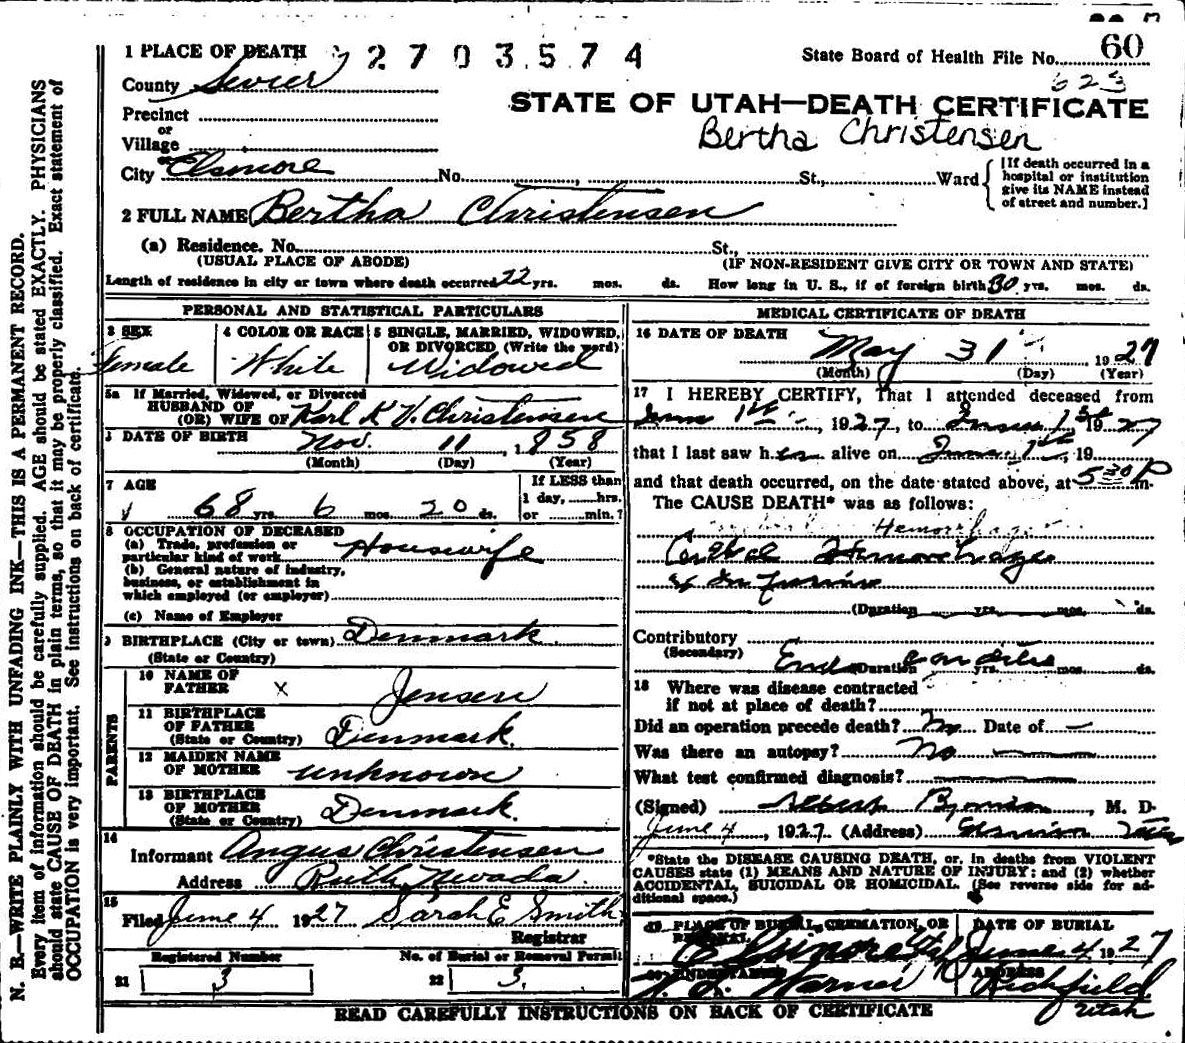 1 PLACE OF DEATH 2703574 State Board of Health File No. 60
County Sevier 623
STATE OF UTAH—DEATH CERTIFICATE
Precinct
or
Village
Bertha Christensen
City Elsinore No. , St., Ward {[If death occurred in a hospital or institution give its NAME instead of street and number.]
2 FULL NAME Bertha Christensen
(a) Residence. No. St.,
(USUAL PLACE OF ABODE) (IF NON-RESIDENT GIVE CITY OR TOWN AND STATE)
Length of residence in city or town where death occurred 22 yrs. mos. ds. How long in U. S., if of foreign birth 30 yrs. mos. ds.
PERSONAL AND STATISTICAL PARTICULARS
3 SEX
Female
4 COLOR OR RACE
White
5 SINGLE, MARRIED, WIDOWED,
OR DIVORCED (Write the word)
Widowed
5a If Married, Widowed, or Divorced
HUSBAND OF
(OR) WIFE OF Karl K V. Christensen
DATE OF BIRTH Nov. 11, 1858
(Month) (Day) (Year)
7 AGE
68 yrs. 6 mos. 20 ds.
If LESS than
1 day, hrs.
or min.?
8 OCCUPATION OF DECEASED
(a) Trade, profession or
particular kind of work Housewife
(b) General nature of industry,
business, or establishment in
which employed (or employer)
(c) Name of Employer
9 BIRTHPLACE (City or town) Denmark
(State or Country)
PARENTS
10 NAME OF
FATHER X Jensen
11 BIRTHPLACE
OF FATHER
(State or Country) Denmark.
12 MAIDEN NAME
OF MOTHER unknown
13 BIRTHPLACE
OF MOTHER
(State or Country) Denmark
14
Informant Angus Christensen
Address Ruth Nevada
15
Filed June 4 1927 Sarah E Smith
Registrar
Registered Number No. of Burial or Removal Permit
21 3 22 3.
MEDICAL CERTIFICATE OF DEATH
16 DATE OF DEATH
May 31 1927
(Month) (Day) (Year)
17 I HEREBY CERTIFY, That I attended deceased from
June 1st, 1927, to June 1st 1927
that I last saw her alive on June 1st, 19
and that death occurred, on the date stated above, at 530 P m.
The CAUSE DEATH* was as follows:
Hemorrhage
Cerebral Hemorrhage
(Duration yrs. mos. ds.
Contributory
(Secondary)
(Duration yrs. mos. ds.
18 Where was disease contracted
if not at place of death?
Did an operation precede death? No Date of —
Was there an autopsy? No
What test confirmed diagnosis?
(Signed) , M. D.
June 4, 1927 (Address)
*State the DISEASE CAUSING DEATH, or, in deaths from VIOLENT
CAUSES state (1) MEANS AND NATURE OF INJURY; and (2) whether
ACCIDENTAL, SUICIDAL OR HOMICIDAL. (See reverse side for ad-
ditional space.)
19 PLACE OF BURIAL, CREMATION, OR
REMOVAL
Elsinore Utah
DATE OF BURIAL
June 4 1927
20 UNDERTAKER
Warner
ADDRESS
Richfield
Utah
READ CAREFULLY INSTRUCTIONS ON BACK OF CERTIFICATE
N. B.—WRITE PLAINLY WITH UNFADING INK—THIS IS A PERMANENT RECORD.
Every item of information should be carefully supplied. AGE should be stated EXACTLY. PHYSICIANS
should state CAUSE OF DEATH in plain terms, so that it may be properly classified. Exact statement of
OCCUPATION is very important. See instructions on back of certificate.